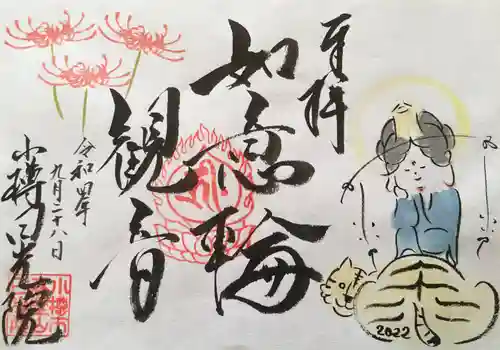 奉拝
如意輪
観音
令和四年
九月二十八日
小樽
院
2022